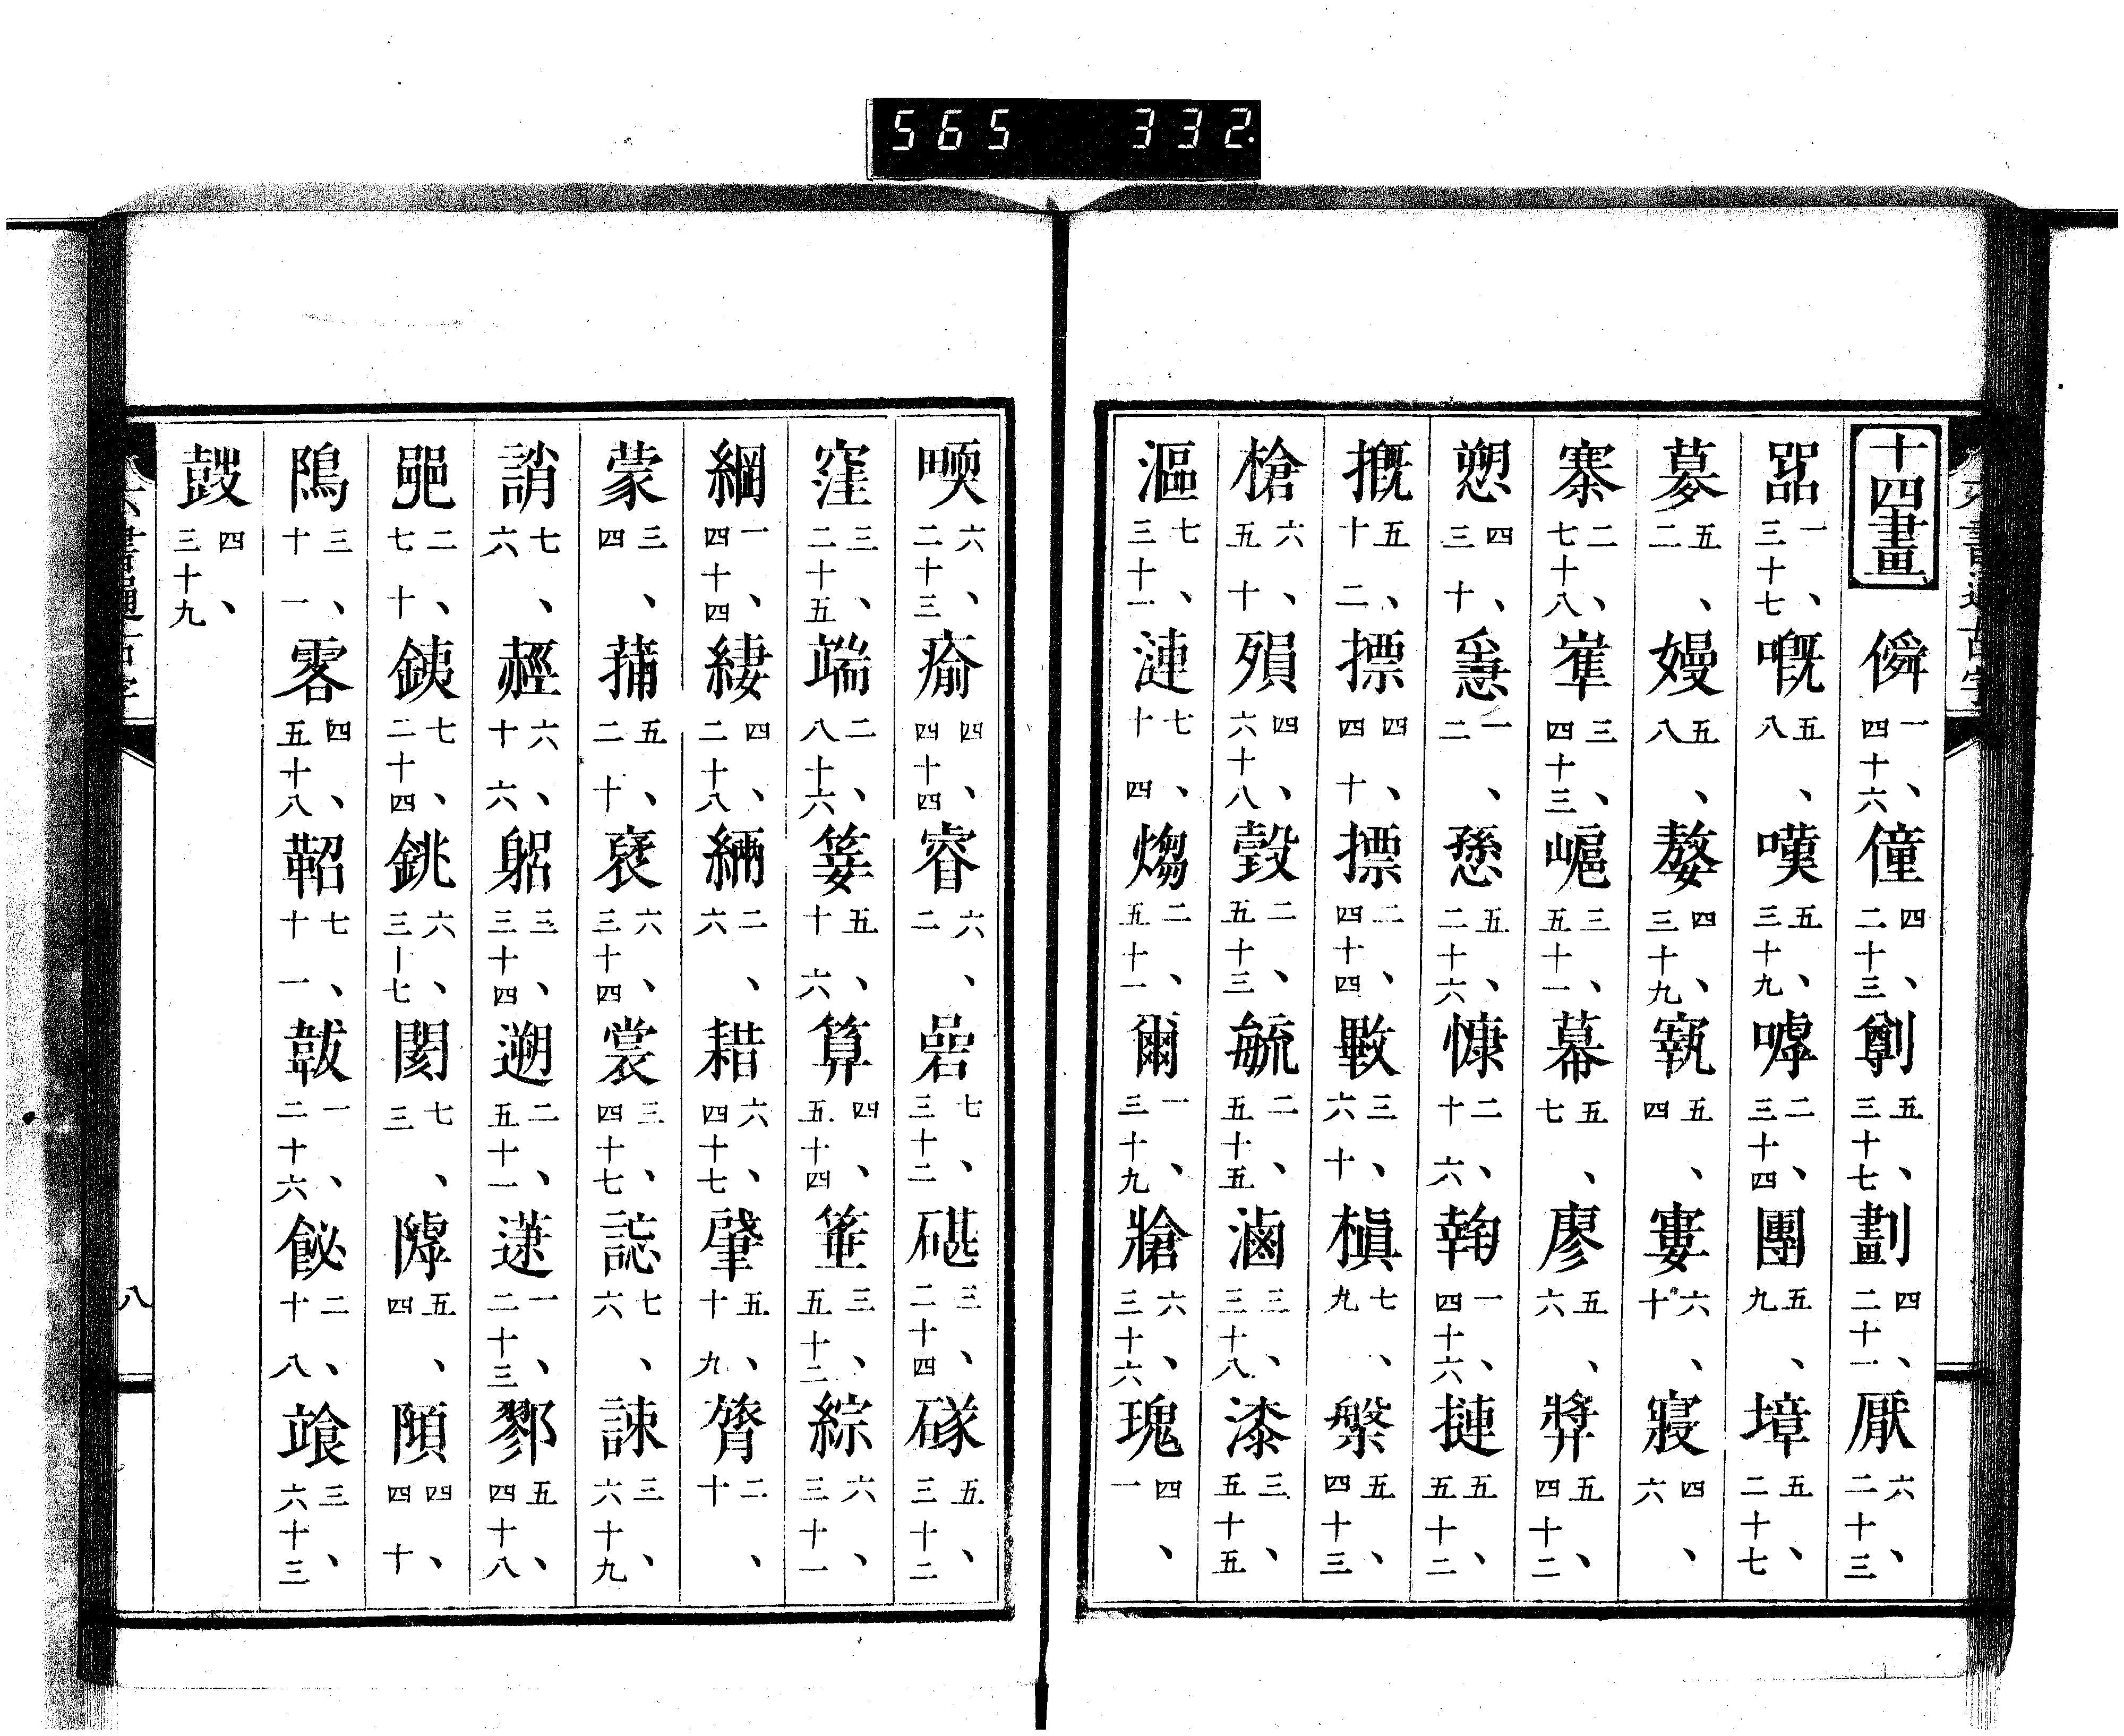 565 332.
十四畫 僢一、四十六 僮四、二十三 劕五、三十七 劃四、二十一 厭六、二十三
噐一、三十七 嘅五、八 嘆五、三十九 嘑二、三十四 團五、九 墇五、二十七
蓦五、二 嫚五、八 嫠四、三十九 寠六、十 寢四、六
寨二、七十八 嶉三、四十三 三、五十一 幕五、七 廖五、六 獎五、四十二
愬四、三十 一、二 五、二十六 慷二、十六 一、四十六 摙五、五十二
摡五、十二 摽四、四十 摽二、四十四 三、六十 槙七、九 槃五、四十三
槍六、五十 殞四、六十八 瑴二、五十三 毓二、五十五 滷三、三十八 漆三、五十五
漚七、三十一 漣七、十四 煼二、五十一 爾一、三十九 牄六、三十六 瑰四、一
六、二十三 瘉四、四十四 睿六、二 碞七、三十二 碪三、二十四 五、三十二
窪三、二十五 端二、八十六 簍五、十六 算四、五十四 箠三、五十二 綜六、三十一
綱一、四十四 緀四、二十八 緉二、六 耤六、四十七 肇五、十九 膋二、十
蒙三、四 蒱五、二十 裦六、三十四 裳三、四十七 誋七、六 諫三、六十九
誚七、六 赬六、十六 躳三、三十四 遡二、五十一 一、二十三 鄝五、四十八
郒二、七十 銕七、二十四 銚六、三十七 閡七、三 五、四 四、四十
隝三、十一 雿四、五十八 鞀七、十一 韍一、二十六 飶二、十八 飡三、六十三
鼓四、三十九
八